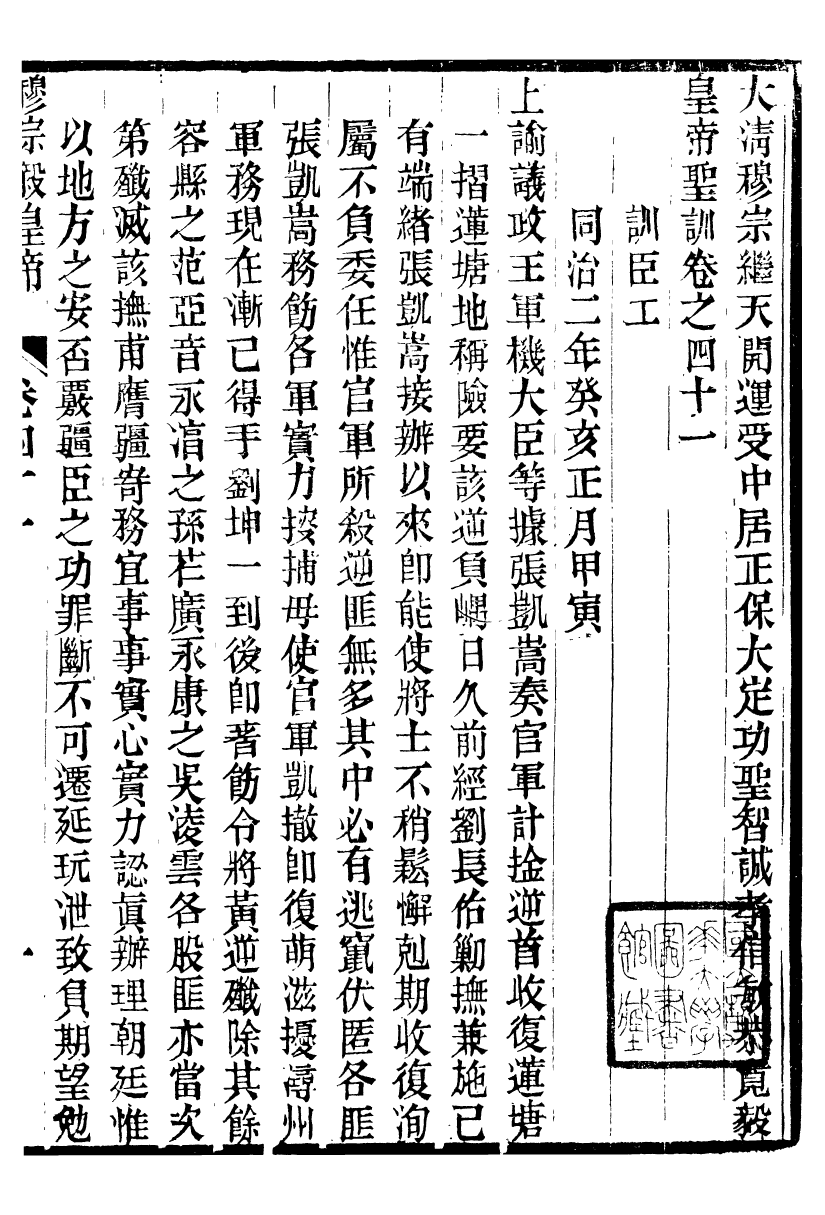 大清穆宗繼天開運受中居正保大定功聖智誠孝信敏恭寬毅
皇帝聖訓卷之四十一
訓臣工
同治二年癸亥正月甲寅
上諭議政王軍機大臣等據張凱嵩奏官軍計擒逆首收復蓮塘
一摺蓮塘地稱險要該逆負嵎日久前經劉長佑勦撫兼施已
有端緒張凱嵩接辦以來卽能使將士不稍鬆懈剋期收復洵
屬不負委任惟官軍所殺逆匪無多其中必有逃竄伏匿各匪
張凱嵩務飭各軍實力按捕毋使官軍凱撤卽復萌滋擾潯州
軍務現在漸已得手劉坤一到後卽著飭令將黃逆殲除其餘
容縣之范亞音永湻之孫芢廣永康之吳淩雲各股匪亦當次
第殲滅該撫甫膺疆寄務宜事事實心實力認眞辦理朝廷惟
以地方之安否覈疆臣之功罪斷不可遷延玩泄致負期望勉
穆宗毅皇帝 卷四十一 一
國立北平大學圖書館藏